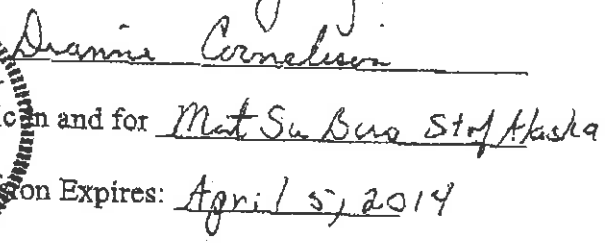 Deanne Cornelison
ic in and for Mat Su Buro St of Alaska
on Expires: April 5, 2014